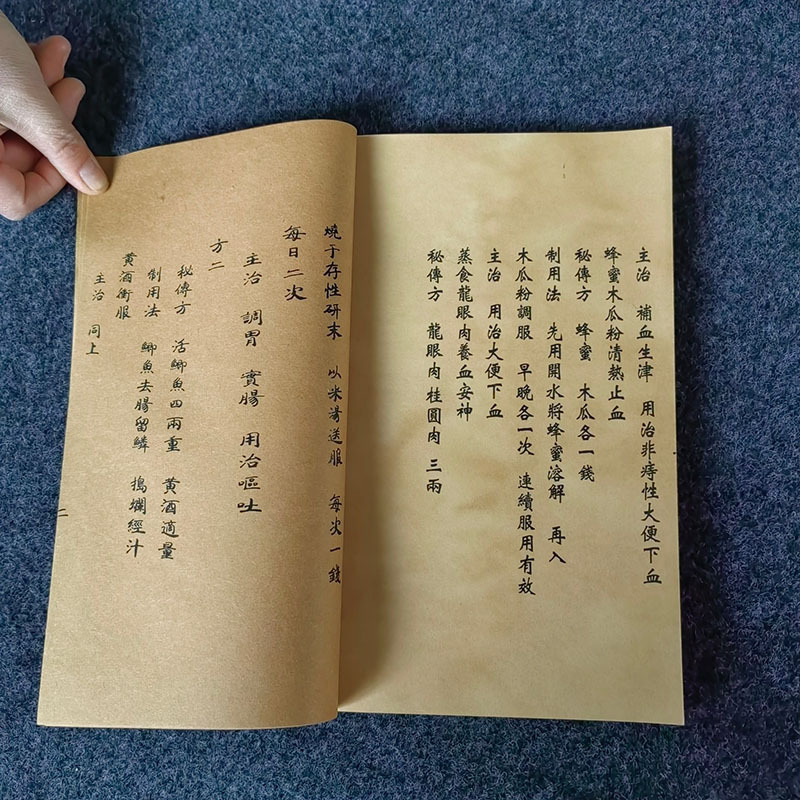 主治 補血生津 用治非痔性大便下血
蜂蜜木瓜粉清熱止血
秘傳方 蜂蜜 木瓜各一錢
制用法 先用開水將蜂蜜溶解 再入
木瓜粉調服 早晚各一次 連續服用有效
主治 用治大便下血
蒸食龍眼肉養血安神
秘傳方 龍眼肉 桂圓肉 三兩
燒于存性研末 以米湯送服 每次一錢
每日二次
主治 調胃 實腸 用治嘔吐
方二
秘傳方 活鯽魚四兩重 黃酒適量
制用法 鯽魚去腸留鱗 搗爛經汁
黃酒衝服
主治 同上
二